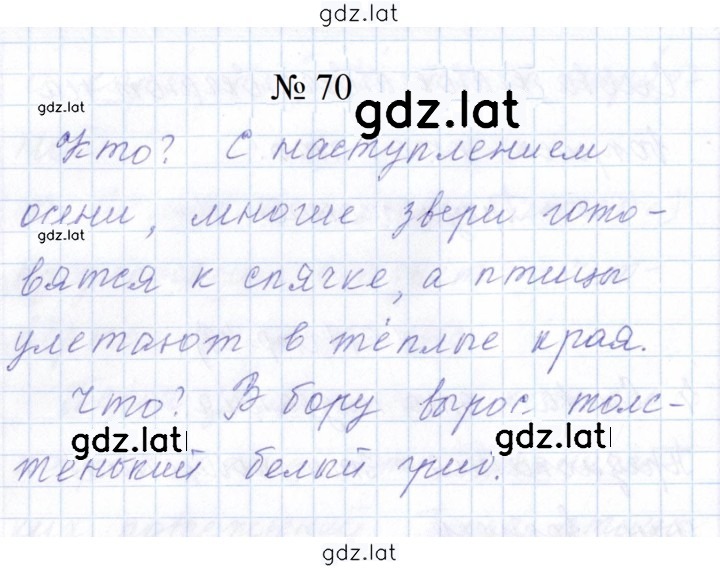 gdz.lat
№ 70
gdz.lat
gdz.lat
Кто? С наступлением
осени, многие звери гото-
gdz.lat
вятся к спячке, а птицы
улетают в тёплые края.
Что? В бору вырос толс-
gdz.lat
gdz.lat
тенький белый гриб.
gdz.lat